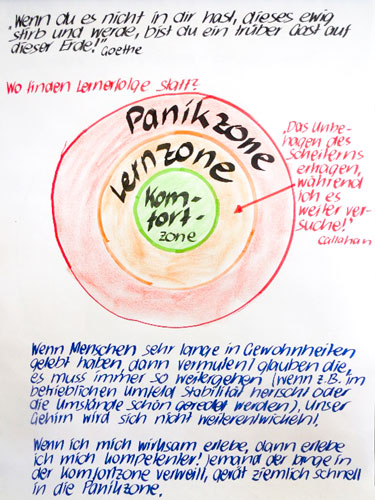 "Wenn du es nicht in dir hast, dieses ewig
stirb und werde, bist du ein trüber Gast auf
dieser Erde!" Goethe
Wo finden Lernerfolge statt?
Panikzone
Lernzone
Kom-
fort-
zone
"Das Unbe-
hagen des
Scheiterns
ertragen,
während
ich es
weiter ver-
suche!"
Callahan
Wenn Menschen sehr lange in Gewohnheiten
gelebt haben, dann vermuten/glauben die,
es muss immer so weitergehen (wenn z.B. im
betrieblichen Umfeld Stabilität herrscht oder
die Umstände schön geredet werden). Unser
Gehirn wird sich nicht weiterentwickeln!
Wenn ich mich wirksam erlebe, dann erlebe
ich mich kompetenter! Jemand der lange in
der Komfortzone verweilt, gerät ziemlich schnell
in die Panikzone.